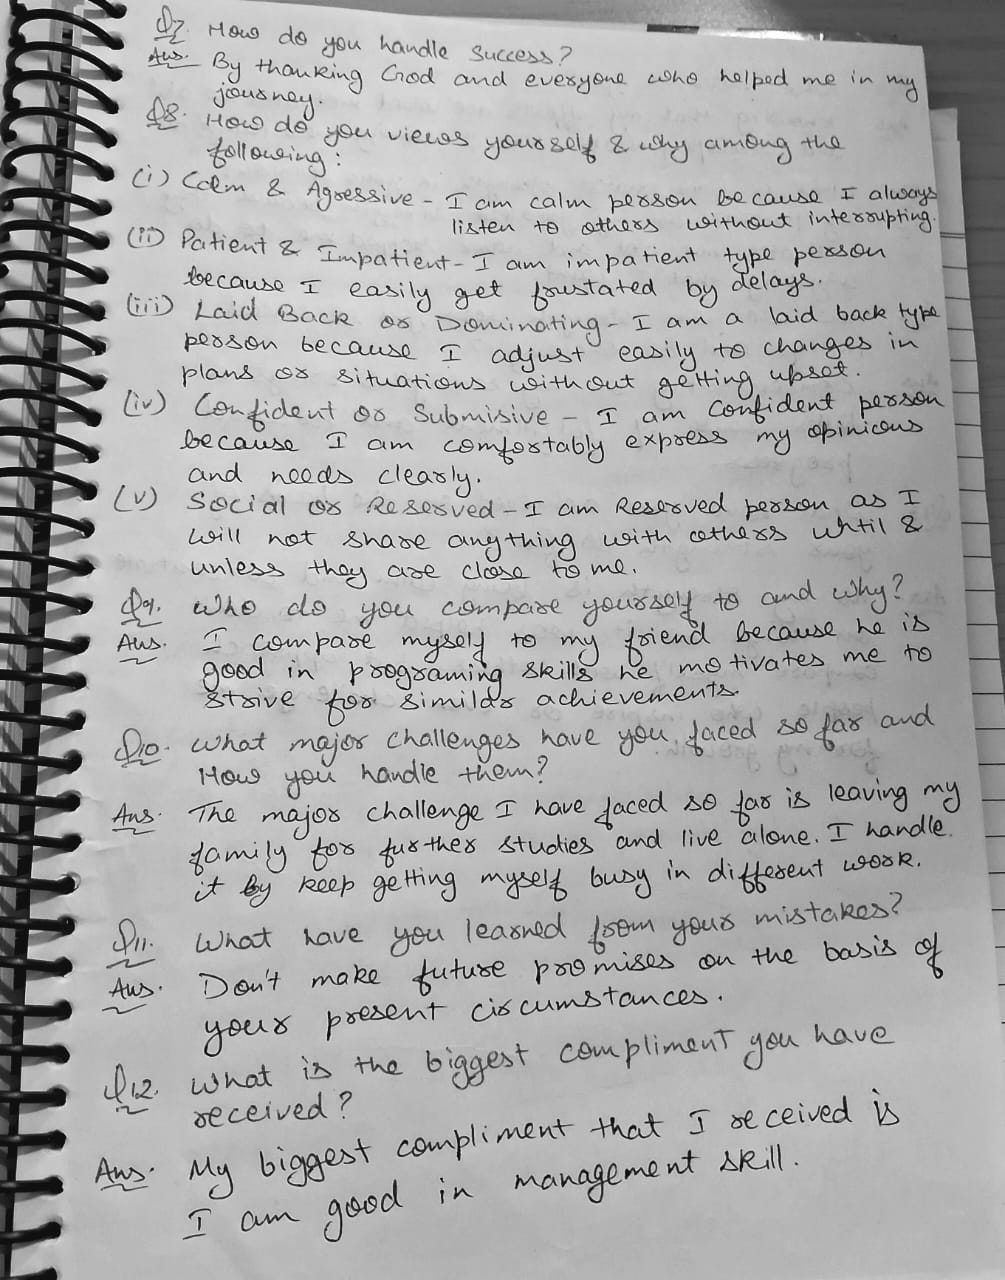 Q7. How do you handle Success?
Ans. By thanking God and everyone who helped me in my
journey.
Q8. How do you views yourself & why among the
following:
(i) Calm & Agressive - I am calm person because I always
listen to others without interrupting.
(ii) Patient & Impatient - I am impatient type person
because I easily get frustated by delays.
(iii) Laid Back or Dominating - I am a laid back type
person because I adjust easily to changes in
plans or situations without getting upset.
(iv) Confident or Submisive - I am confident person
because I am comfortably express my opinions
and needs clearly.
(v) Social or Reserved - I am Reserved person as I
will not share anything with others until &
unless they are close to me.
Q9. Who do you compare yourself to and why?
Ans. I compare myself to my friend because he is
good in programing skills he motivates me to
strive for similar achievements.
Q10. What major challenges have you faced so far and
How you handle them?
Ans. The major challenge I have faced so far is leaving my
family for further studies and live alone. I handle
it by keep getting myself busy in different work.
Q11. What have you learned from your mistakes?
Ans. Don't make future promises on the basis of
your present circumstances.
Q12. What is the biggest compliment you have
received?
Ans. My biggest compliment that I received is
I am good in management skill.